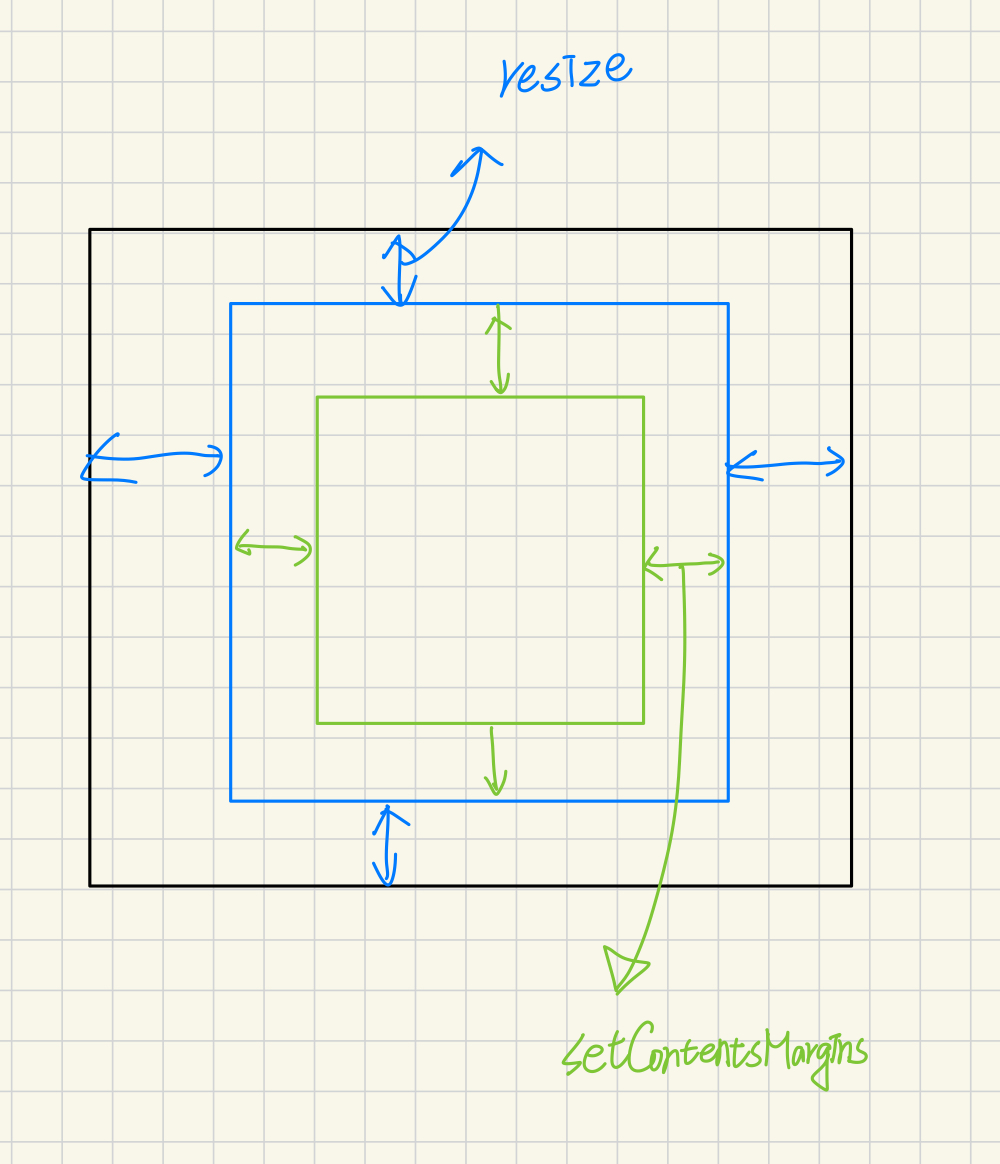 resize
setContentsMargins